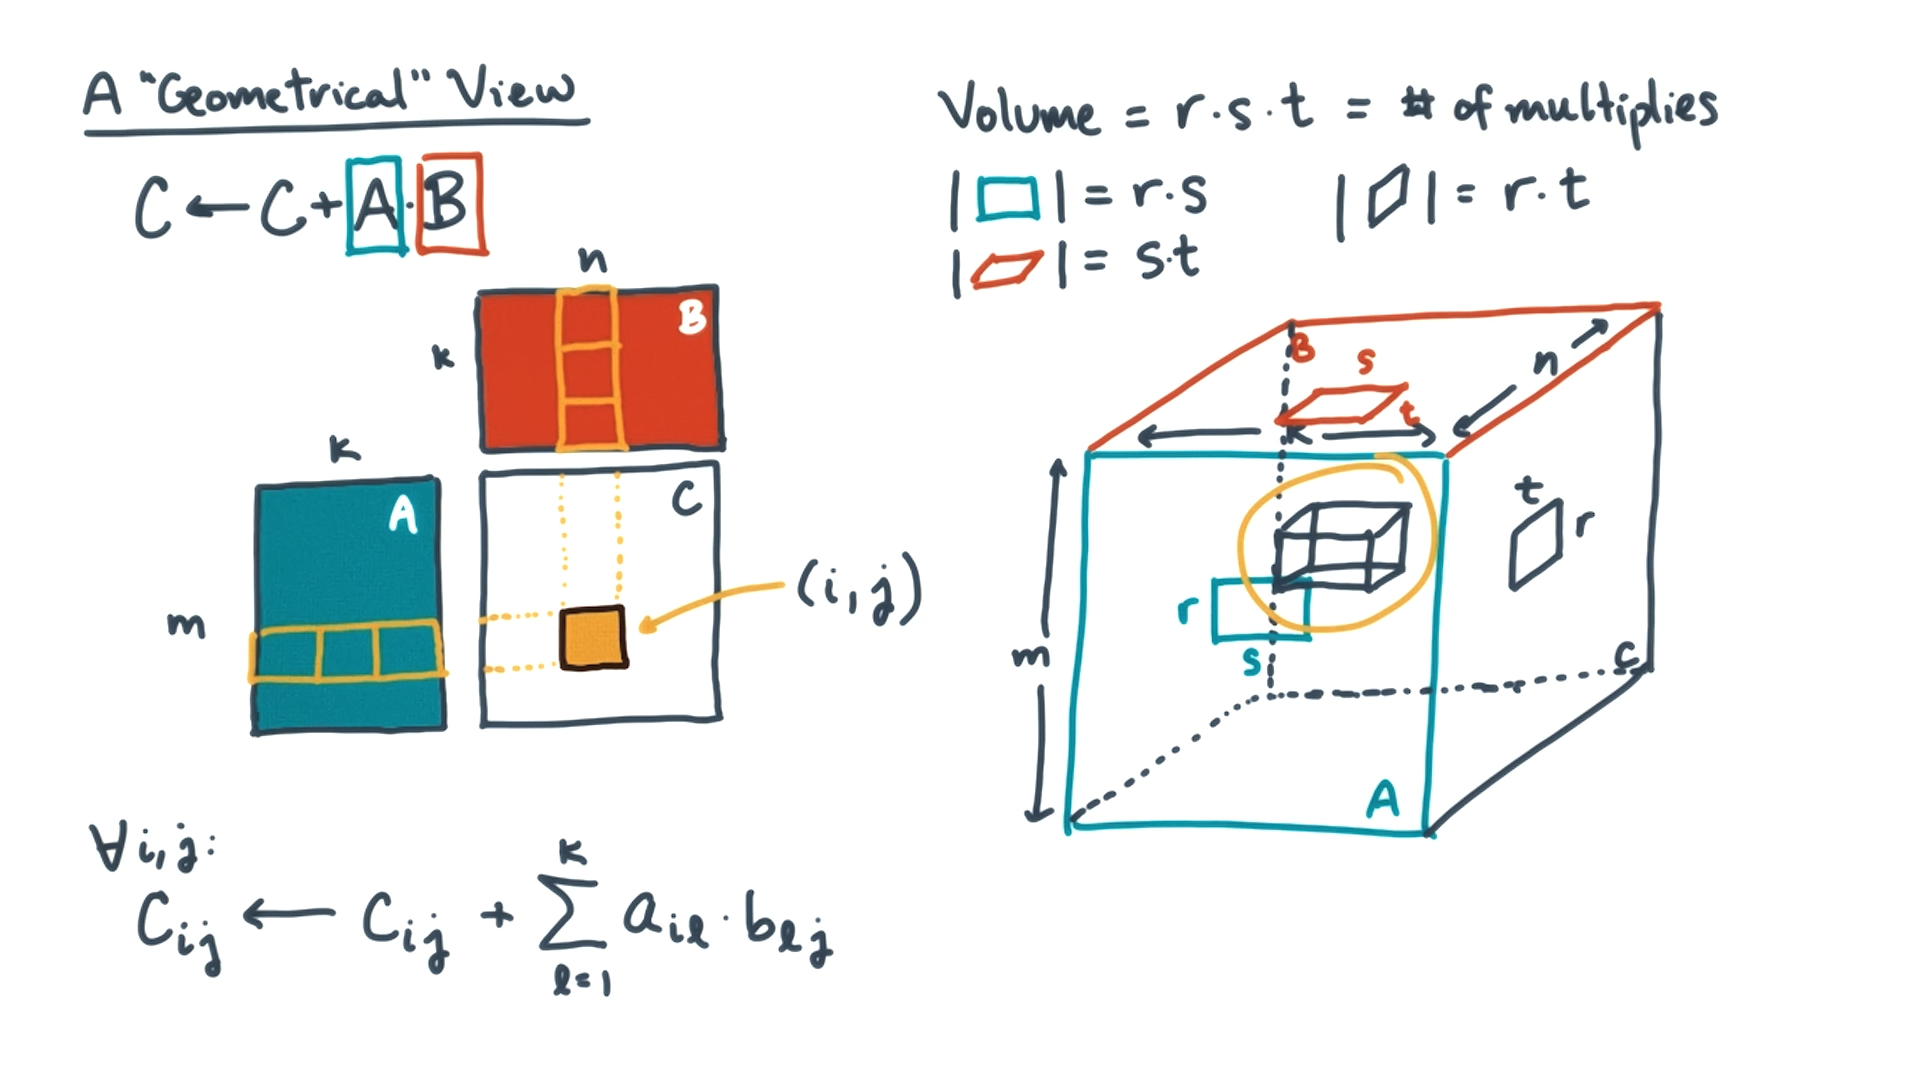 A "Geometrical" View
C ← C + A · B
n
B
k
k
A
m
C
(i, j)
∀i, j:
Cij ← Cij + ∑ k l=1 ail · blj
Volume = r · s · t = # of multiplies
| ▭ | = r·s
| ▱ | = r·t
| ▱ | = s·t
B
s
t
n
k
t
r
r
s
m
C
A